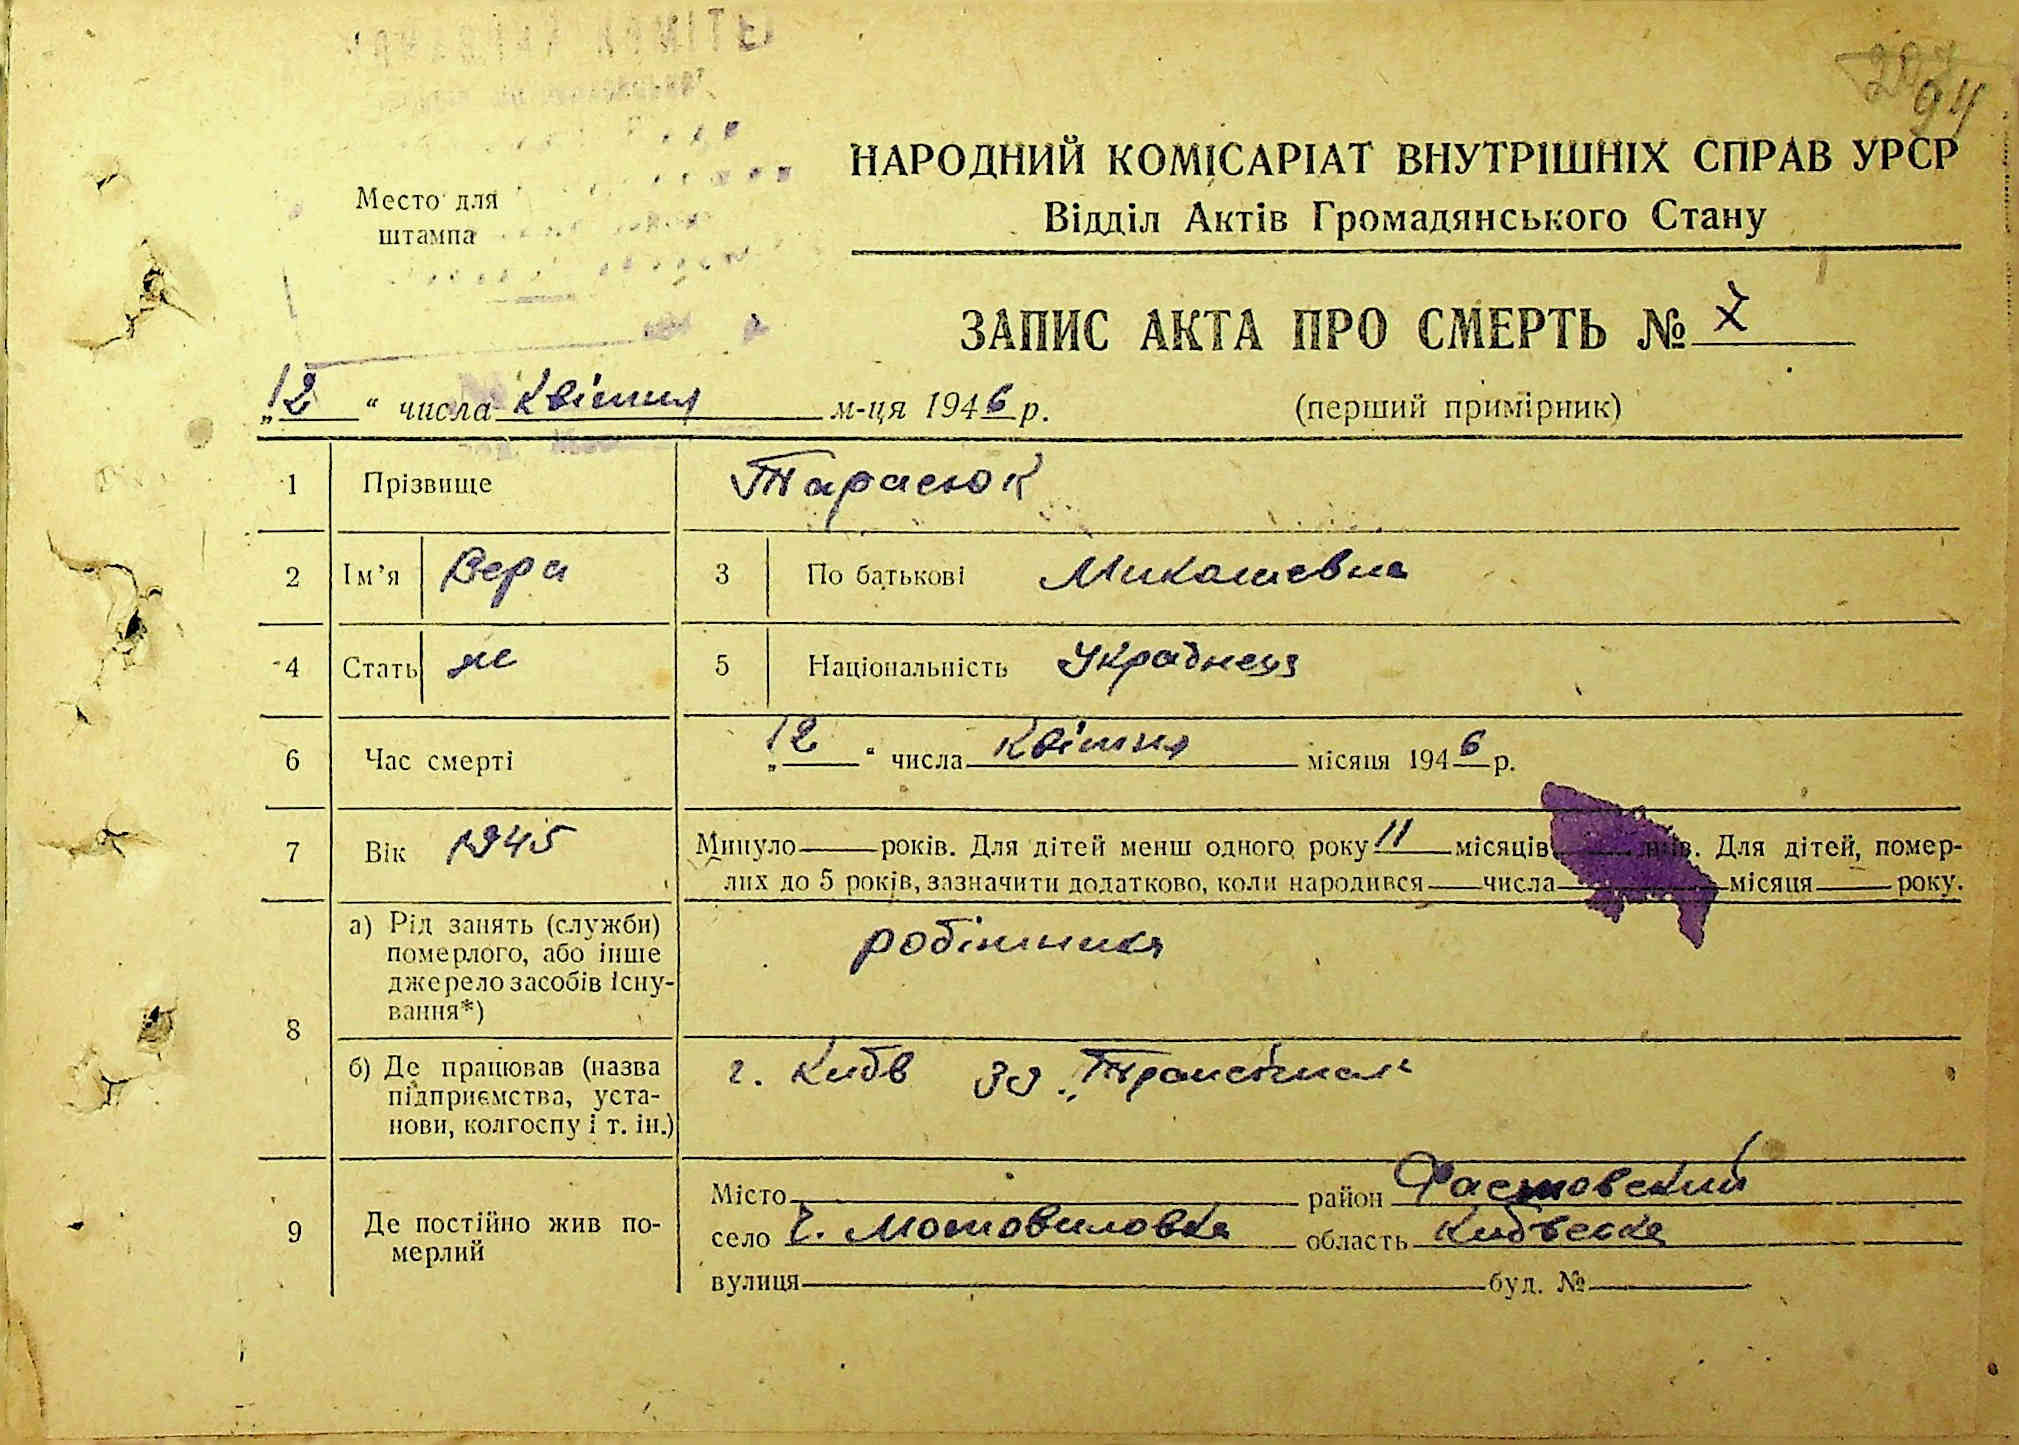 94
НАРОДНИЙ КОМІСАРІАТ ВНУТРІШНІХ СПРАВ УРСР
Место для
штампа
Відділ Актів Громадянського Стану
ЗАПИС АКТА ПРО СМЕРТЬ № 7
„12“ числа квітня м-ця 1946 р.
(перший примірник)
1 Прізвище Тарасюк
2 Ім’я Вера 3 По батькові Миколаевна
4 Стать ж 5 Національність Украінець
6 Час смерті „12“ числа квітня місяця 1946 р.
7 Вік 1945 Минуло — років. Для дітей менш одного року 11 місяців днів. Для дітей, помер-
лих до 5 років, зазначити додатково, коли народився — числа — місяця — року.
8 а) Рід занять (служби)
померлого, або інше
джерело засобів існу-
вання*)
робітника
б) Де працював (назва
підприємства, уста-
нови, колгоспу і т. ін.)
г. Київ
9 Де постійно жив по-
мерлий
Місто — район Фастовский
село Мотовиловка область Київська
вулиця — буд. № —